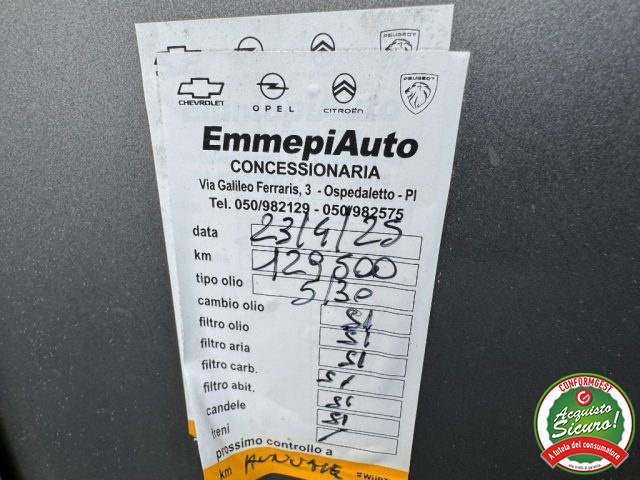 PEUGEOT
CHEVROLET OPEL CITROËN PEUGEOT
EmmepiAuto
CONCESSIONARIA
Via Galileo Ferraris, 3 - Ospedaletto - PI
Tel. 050/982129 - 050/982575
data 23/4/25
km 129500
tipo olio 5/30
cambio olio SI
filtro olio SI
filtro aria SI
filtro carb. SI
filtro abit. SI
candele SI
freni /
prossimo controllo a
km ANNUALE
CONFORMGEST
Acquisto
Sicuro!
A tutela del consumatore